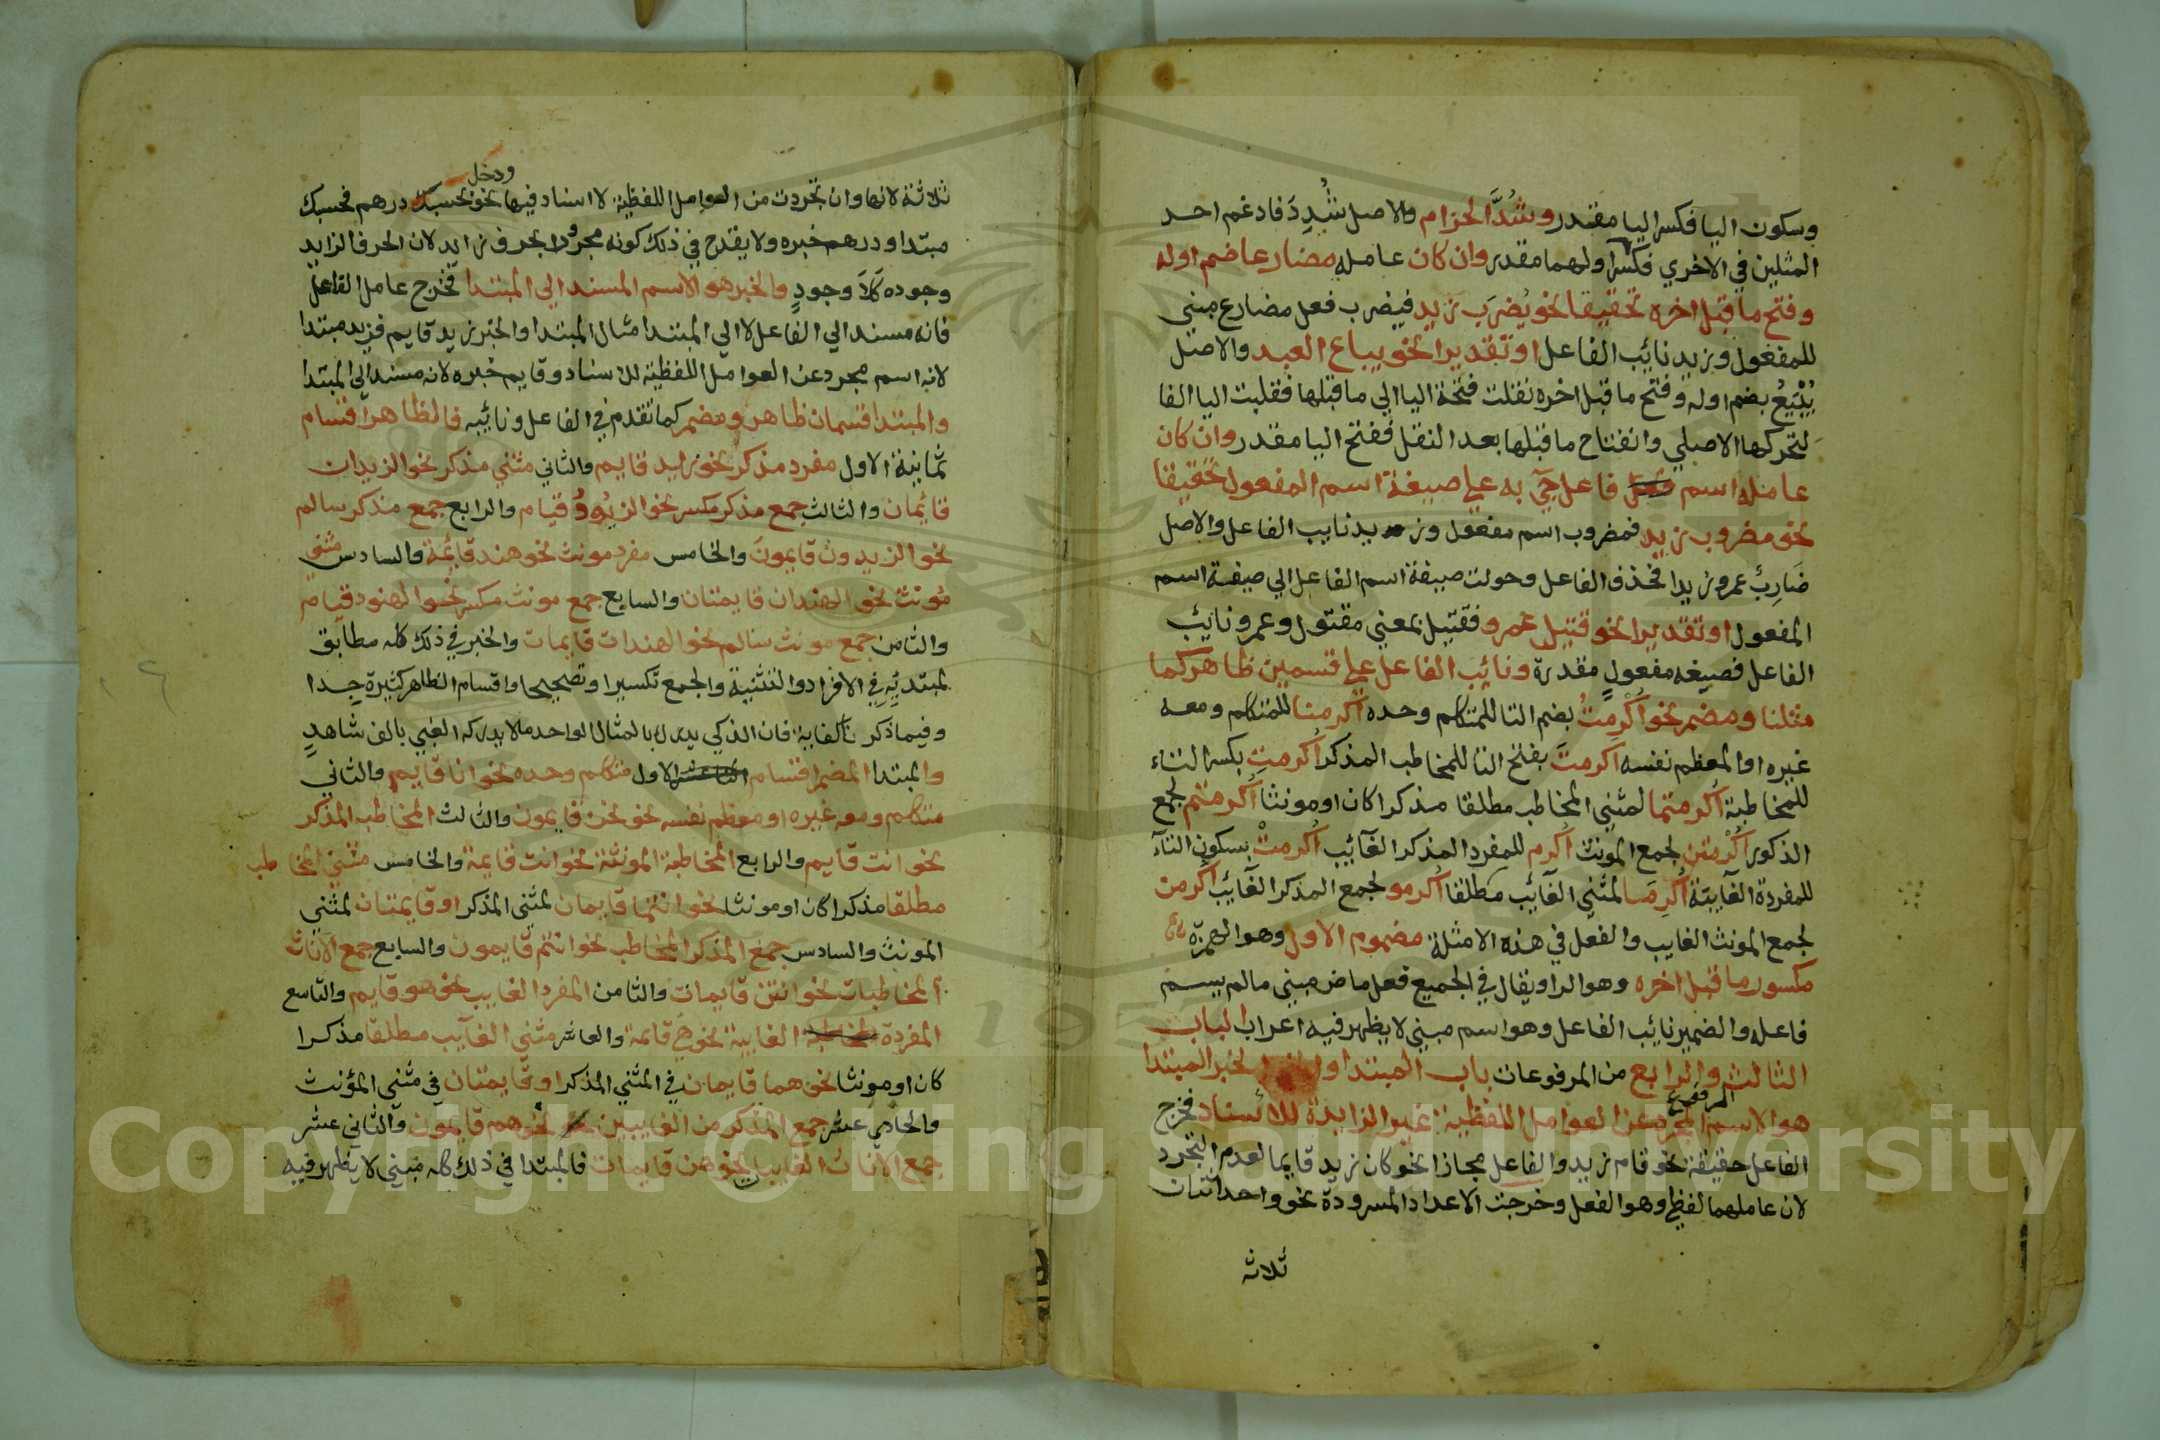 وسكون اليا فكسر اليا مقدر وشُدَّ الحزام والاصل شُدِدَ فادغم احد
المثلين في الاخري فكسر اولهما مقدر وان كان عامله مضارعا ضم اوله
وفتح ما قبل اخره تحقيقا نحو يُضرَب زيد فيضرب فعل مضارع مبني
للمفعول وزيد نائب الفاعل او تقديرا نحو يباع العبد والاصل
يُبْيَعُ بضم اوله وفتح ما قبل اخره نقلت فتحة اليا الي ما قبلها فقلبت اليا الفا
لتحركها الاصلي وانفتاح ما قبلها بعد النقل ففتح اليا مقدر وان كان
عامله اسم فاعل جيَ به علي صيغة اسم المفعول تحقيقا
نحو مضروب زيد فمضروب اسم مفعول وزيد نايب الفاعل والاصل
ضَارِبٌ عمرو زيدا فحذف الفاعل وحولت صيغة اسم الفاعل الي صيغة اسم
المفعول او تقديرا نحو قتيل عمرو فقتيل بمعني مقتول وعمرو نائب
الفاعل فصيغه مفعولٍ مقدرة ونائب الفاعل علي قسمين ظاهر كما
مثلنا ومضمر نحو اُكْرِمتُ بضم التا للمتكلم وحده اُكرمنا للمتكلم ومعه
غيره او المعظم نفسه اكرمتَ بفتح التا للمخاطب المذكر اُكرمتِ بكسر التاء
للمخاطبة اُكرمتما لمثني المخاطب مطلقا مذكرا كان او مونثا اُكرمتم لجمع
الذكور اُكْرِمتن لجمع المونث اُكرم للمفرد المذكر الغائب اُكرمتْ بسكون التآء
للمفردة الغآيبة اُكرِمَا لمثني الغائب مطلقا اُكرمو لجمع المذكر الغآئب اُكرمن
لجمع المونث الغايب والفعل في هذه الامثلة مضموم الاول وهو الهمزة
مكسور ما قبل اخره وهو الرا ويقال في الجميع فعل ماض مبني مالم يسم
فاعله والضمير نائب الفاعل وهو اسم مبني لا يظهر فيه اعراب الباب
الثالث والرابع من المرفوعات باب المبتدا والخبر المبتدا
هو الاسم المرفوع المجرد عن العوامل اللفظية غير الزايدة للاسناد فخرج
الفاعل حقيقة نحو قام زيد والفاعل مجازا نحو كان زيد قايما لعدم التجرد
لان عاملهما لفظي وهو الفعل وخرجت الاعداد المسرودة نحو واحد اثنان
ثلاثة
ثلاثة لانها وان تجردت من العوامل اللفظية لا اسناد فيها ودخل نحو بحسبك درهم فحسبك
مبتدا ودرهم خبره ولا يقدح في ذلك كونه مجرورا بحرف زايد لان الحرف الزايد
وجوده كَلَا وجودٍ والخبر هو الاسم المسند الي المبتدا فخرج عامل الفاعل
فانه مسند الي الفاعل لا الي المبتدا مثال المبتدا والخبر زيد قايم فزيد مبتدا
لانه اسم مجرد عن العوامل اللفظية للاسناد وقايم خبره لانه مسند الي المبتدا
والمبتدا قسمان ظاهر ومضمر كما تقدم في الفاعل ونائيبه فالظاهر اقسام
ثمانية الاول مفرد مذكر نحو زايد قايم والثاني مثني مذكر نحو الزيدان
قائمان والثالث جمع مذكر مكسر نحو الزيود قيام والرابع جمع مذكر سالم
نحو الزيدون قايمونَ والخامس مفرد مونث نحو هند قايمة والسادس مثني
مونث نحو الهندان قايمتان والسابع جمع مونث مكسر نحو الهنود قيام
والثامن جمع مونث سالم نحو الهندات قايمات والخبر في ذلك كله مطابق
لمبتديه في الافراد والتثنية والجمع تكسيرا وتصحيحا واقسام الظاهر كثيرة جدا
وفيما ذكرنا كفاية فان الذكي يدرك بالمثال الواحد مالا يدركه الغبي بالف شاهدٍ
والمبتدا المضمر اقسام الاول متكلم وحده نحو انا قايم والثاني
متكلم ومعه غيره او معظم نفسه نحو نحن قايمون والثالث المخاطب المذكر
نحو انت قايم والرابع المخاطبة المونثة نحو انت قايمة والخامس مثني المخاطب
مطلقا مذكرا كان او مونثا نحو انتما قايمان لمثني المذكر او قايمتان لمثني
المونث والسادس جمع المذكر المخاطب نحو انتم قايمون والسابع جمع الاناث
المخاطبات نحو انتن قايمات والثامن المفرد الغايب نحو هو قايم والتاسع
المفردة الغايبة نحو هي قائمة والعاشر مثني الغآيب مطلقا مذكرا
كان او مونثا نحو هما قايمان في المثني المذكر او قايمتان في مثني المؤنث
والحادي عشر جمع المذكر من الغايبين نحو هم قايمون والثاني عشر
جمع الاناث الغايب نحو هن قايمات فالمبتدا في ذلك كله مبني لا يظهر فيه
Copyright © King Saud University
195